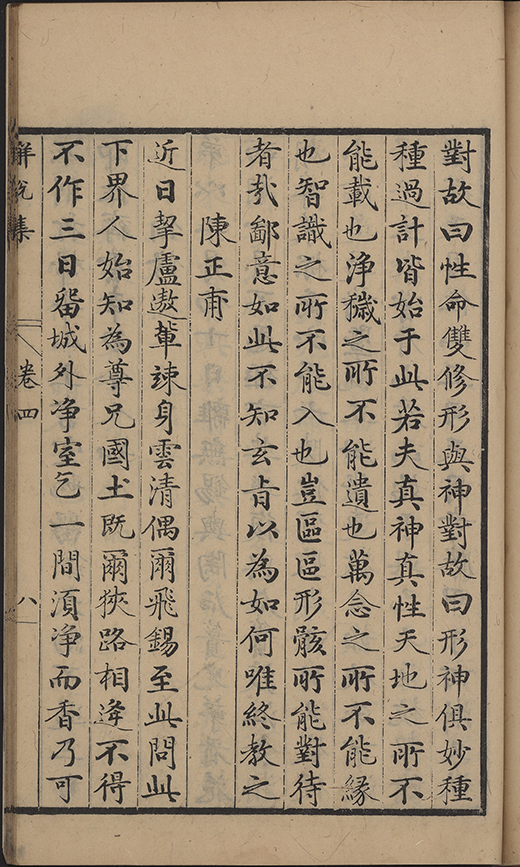 對故曰性命雙修形與神對故曰形神俱妙種
種過計皆始于此若夫真神真性天地之所不
能載也淨穢之所不能遺也萬念之所不能緣
也智識之所不能入也豈區區形骸所能對待
者哉鄙意如此不知玄旨以為如何唯終教之
陳正甫
近日挈盧遨輩竦身雲清偶爾飛錫至此問此
下界人始知為尊兄國土既爾狹路相逢不得
不作三日留城外净室乞一間須净而香乃可
解脫集
卷四
八